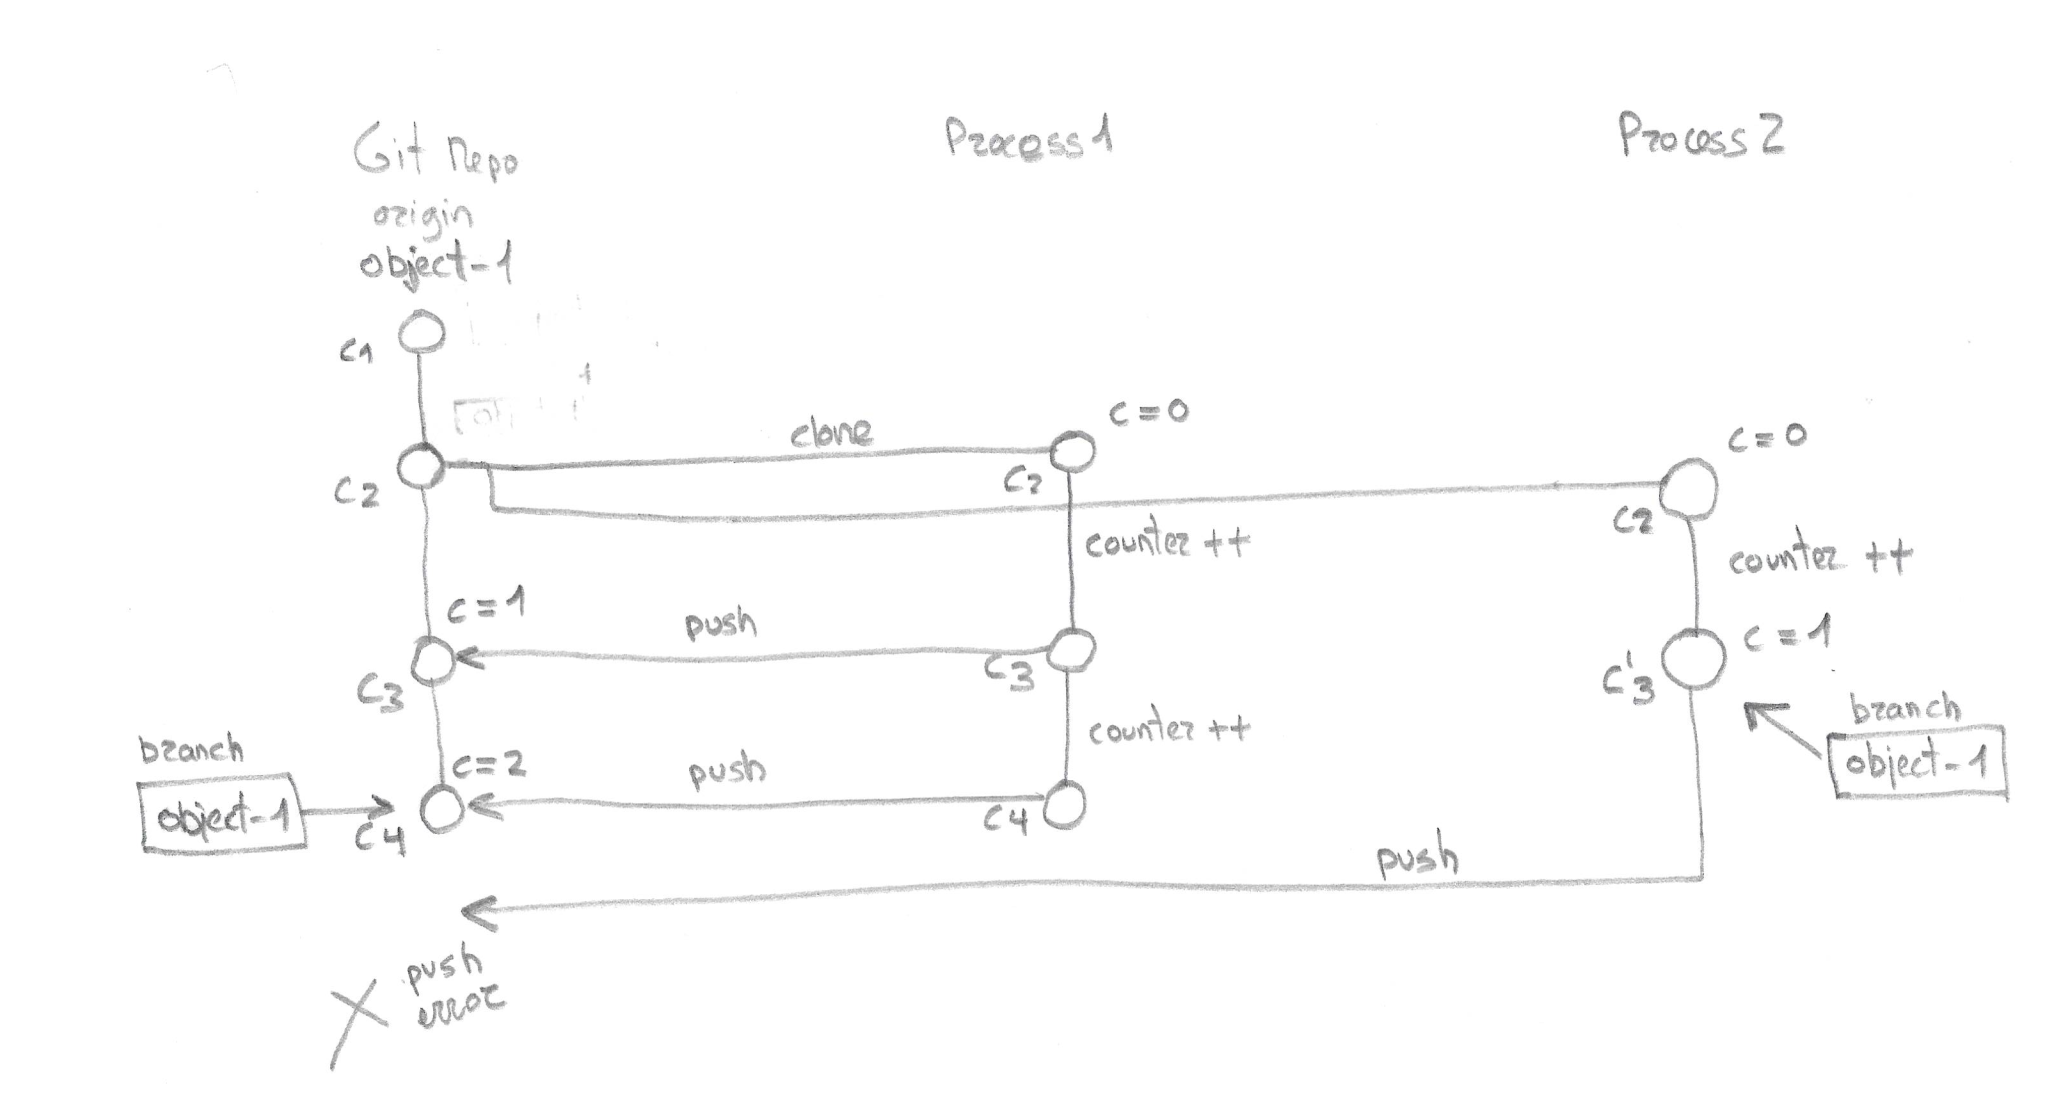 Git Repo
origin
object-1
Process 1
Process 2
C1
C2
clone
C=0
C2
C=0
C2
counter ++
counter ++
C=1
push
C3
C3
C=1
C'3
counter ++
branch
object-1
branch
object-1
C=2
push
C4
C4
push
push
error